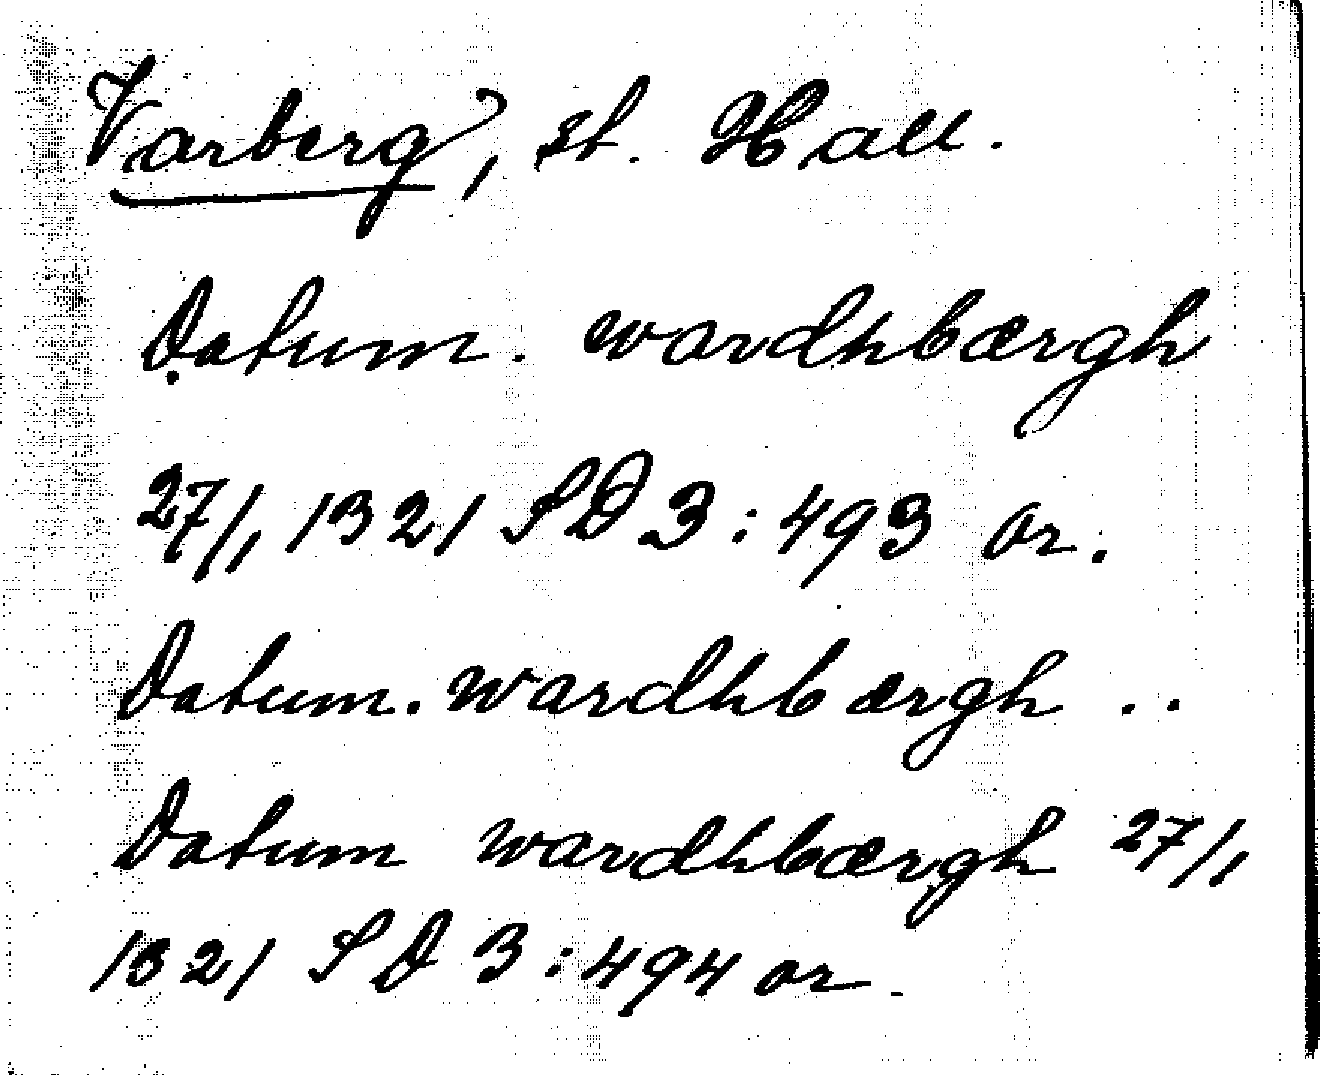 Varberg, st. Hall.
Datum. wardhbærgh
27/1 1321 SD 3:493 or.
Datum. wardhbærgh ..
Datum wardhbærgh 27/1
1321 SD 3:494 or.